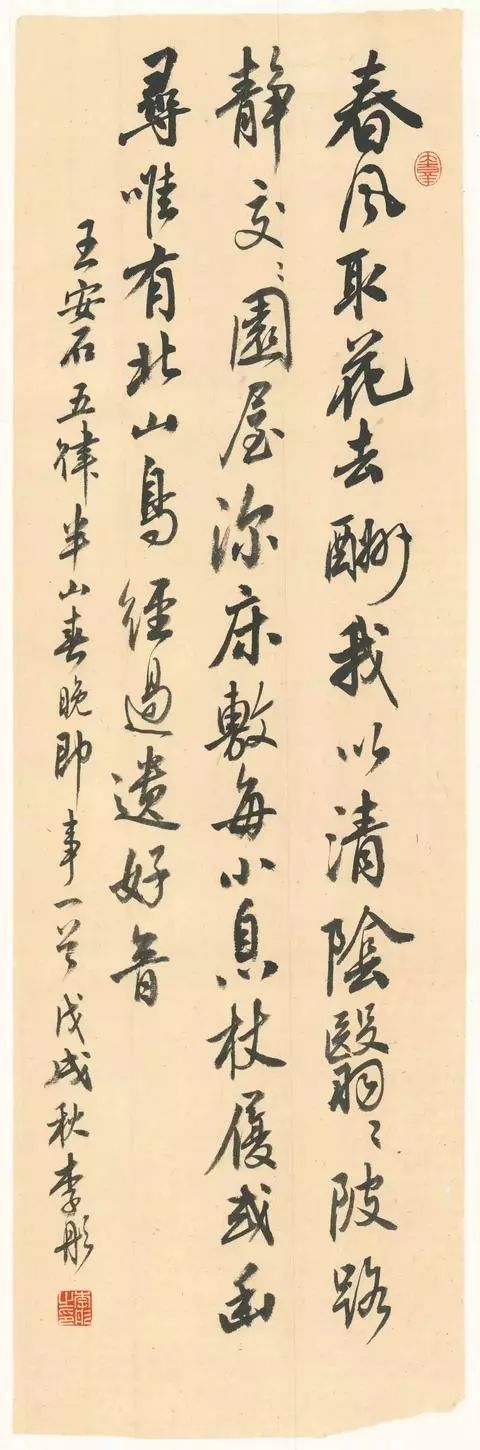 春风取花去酬我以清陰翳〻陂路
静交〻園屋深床敷每小息杖屨或幽
尋唯有北山鳥經過遺好音
王安石五律半山春晚即事一首戊戌秋李彤
李彤之印